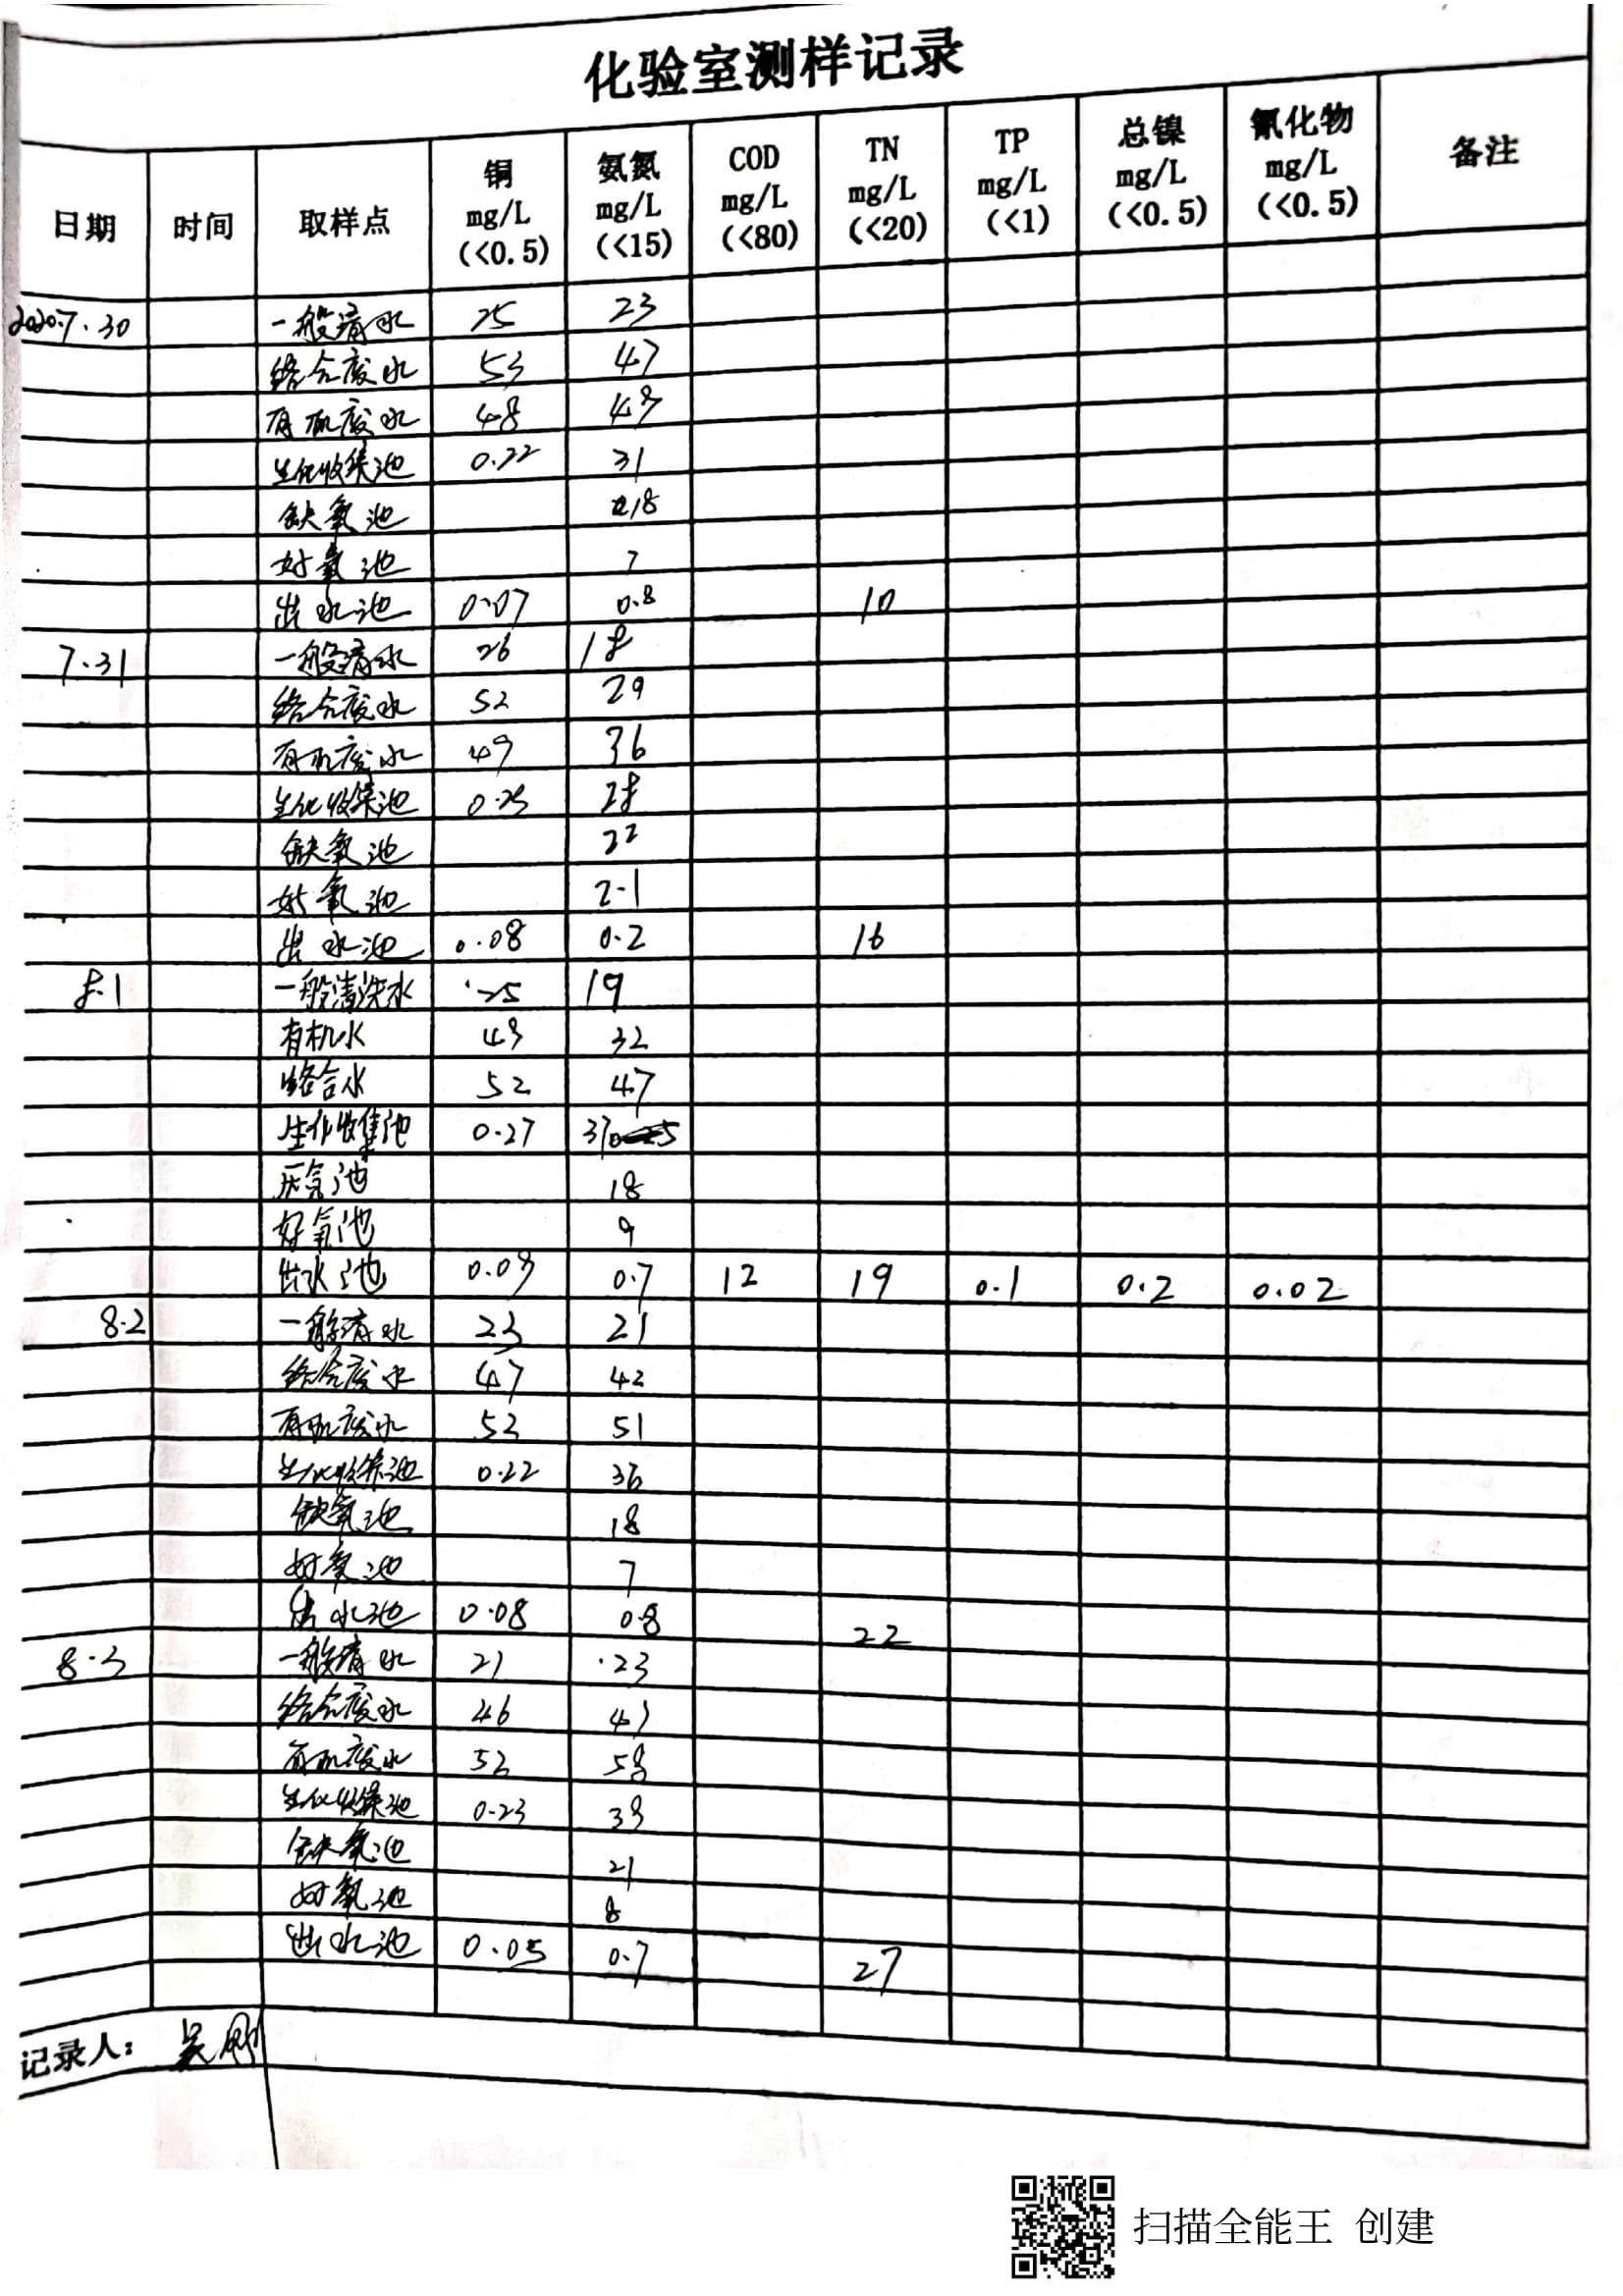 化验室测样记录
日期 时间 取样点 铜 mg/L (<0.5) 氨氮 mg/L (<15) COD mg/L (<80) TN mg/L (<20) TP mg/L (<1) 总镍 mg/L (<0.5) 氰化物 mg/L (<0.5) 备注
2020.7.30 一般清水 25 23
络合废水 53 47
有机废水 48
生化收集池 0.22 31
缺氧池 18
好氧池 7
出水池 0.07 0.8 10
7.31 一般清水 26 18
络合废水 52 29
有机废水 49 36
生化收集池 0.25 28
缺氧池 22
好氧池 2.1
出水池 0.08 0.2 16
8.1 一般清洗水 25 19
有机水 32
络合水 52 47
生化收集池 0.27 37
厌氧池 18
好氧池 9
出水池 0.7 12 19 0.1 0.2 0.02
8.2 一般清水 23 21
络合废水 47 42
有机废水 51
生化收集池 0.22 36
缺氧池 18
好氧池 7
出水池 0.08 0.8 22
8.3 一般清水 21 23
络合废水 46
有机废水
生化收集池 0.23
缺氧池 21
好氧池 8
出水池 0.05 0.7 27
记录人: 吴刚
扫描全能王 创建